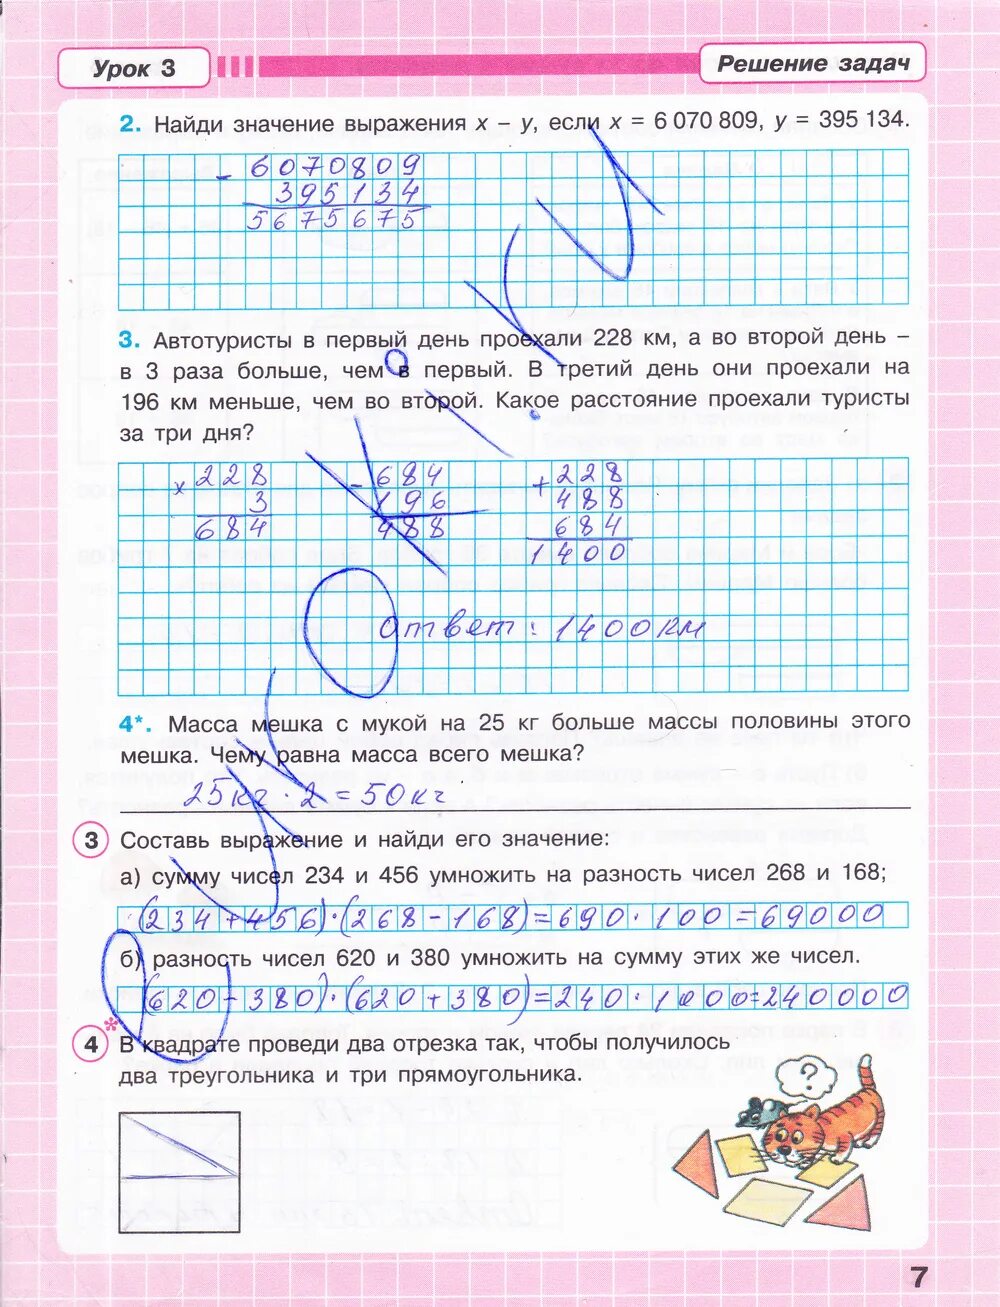 Урок 3
Решение задач
2. Найди значение выражения x – y, если x = 6 070 809, y = 395 134.
- 6070809
395134
5675675
3. Автотуристы в первый день проехали 228 км, а во второй день –
в 3 раза больше, чем в первый. В третий день они проехали на
196 км меньше, чем во второй. Какое расстояние проехали туристы
за три дня?
x 228 - 684 + 228
3 196 488
684 488 684
1400
Ответ: 1400км
4*. Масса мешка с мукой на 25 кг больше массы половины этого
мешка. Чему равна масса всего мешка?
25кг · 2 = 50кг
3 Составь выражение и найди его значение:
а) сумму чисел 234 и 456 умножить на разность чисел 268 и 168;
(234+456)·(268-168)=690·100=69000
б) разность чисел 620 и 380 умножить на сумму этих же чисел.
(620-380)·(620+380)=240·1000=240000
4* В квадрате проведи два отрезка так, чтобы получилось
два треугольника и три прямоугольника.
?
7